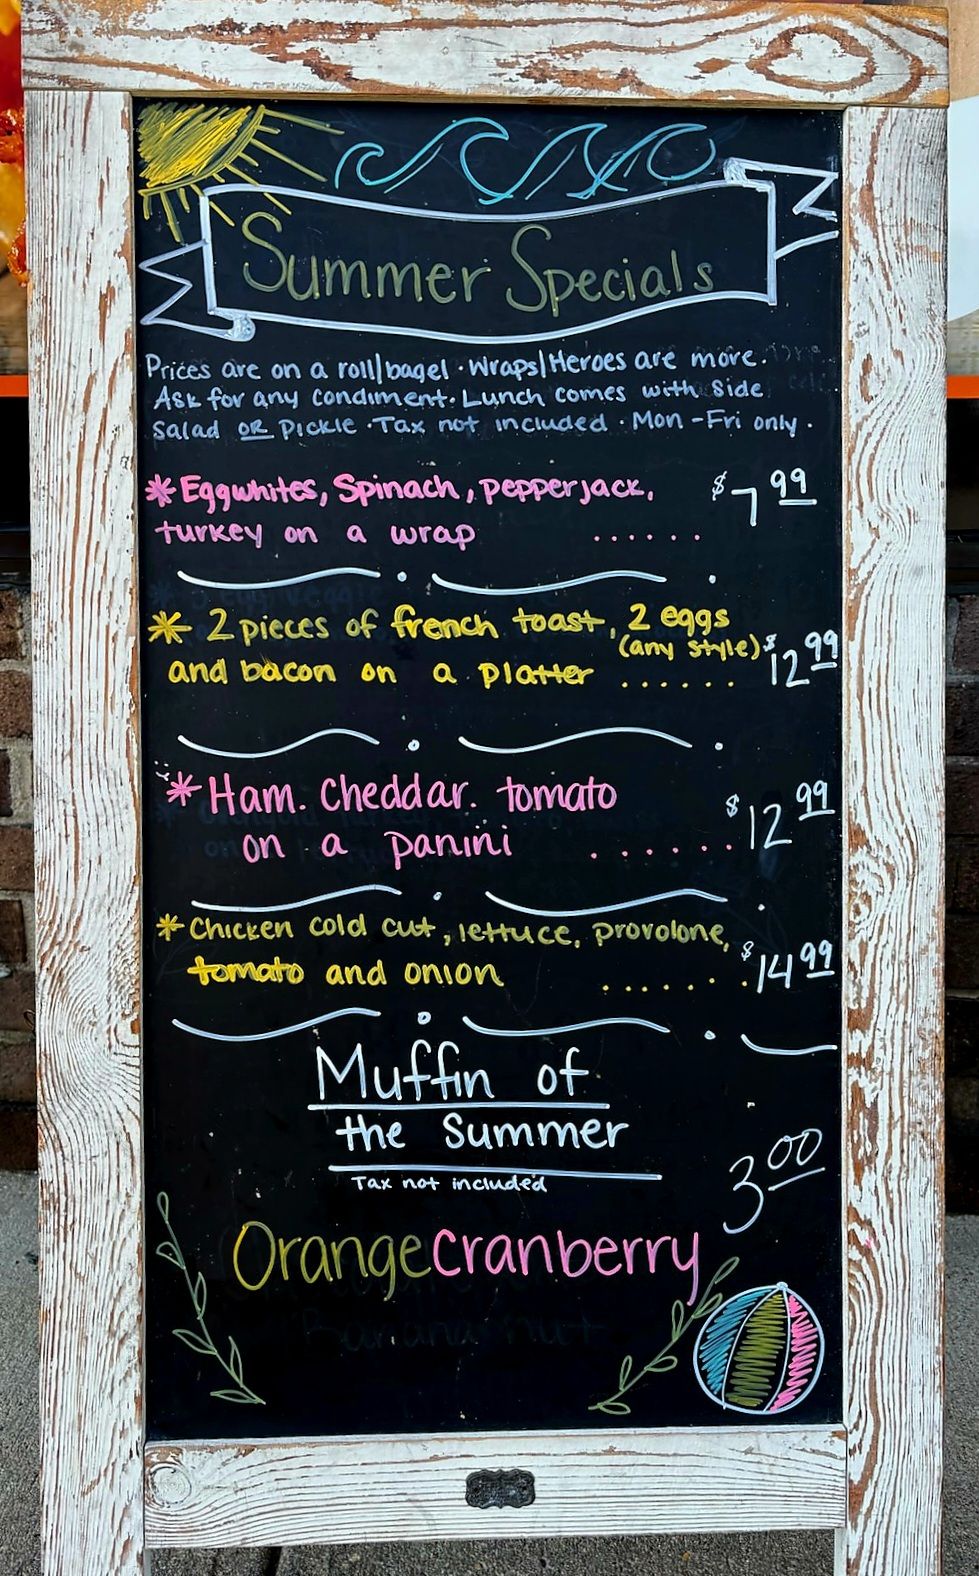 Summer Specials
Prices are on a roll/bagel · Wraps/Heroes are more.
Ask for any condiment. Lunch comes with side
salad OR pickle · Tax not included · Mon - Fri only.
* Eggwhites, Spinach, pepperjack, $7 99
turkey on a wrap ......
* 2 pieces of french toast, 2 eggs
(any style) $12 99
and bacon on a platter ......
* Ham. Cheddar. tomato $12 99
on a panini .......
* Chicken cold cut, lettuce, provolone, $14 99
tomato and onion .......
Muffin of
the Summer
Tax not included
3 00
Orange cranberry